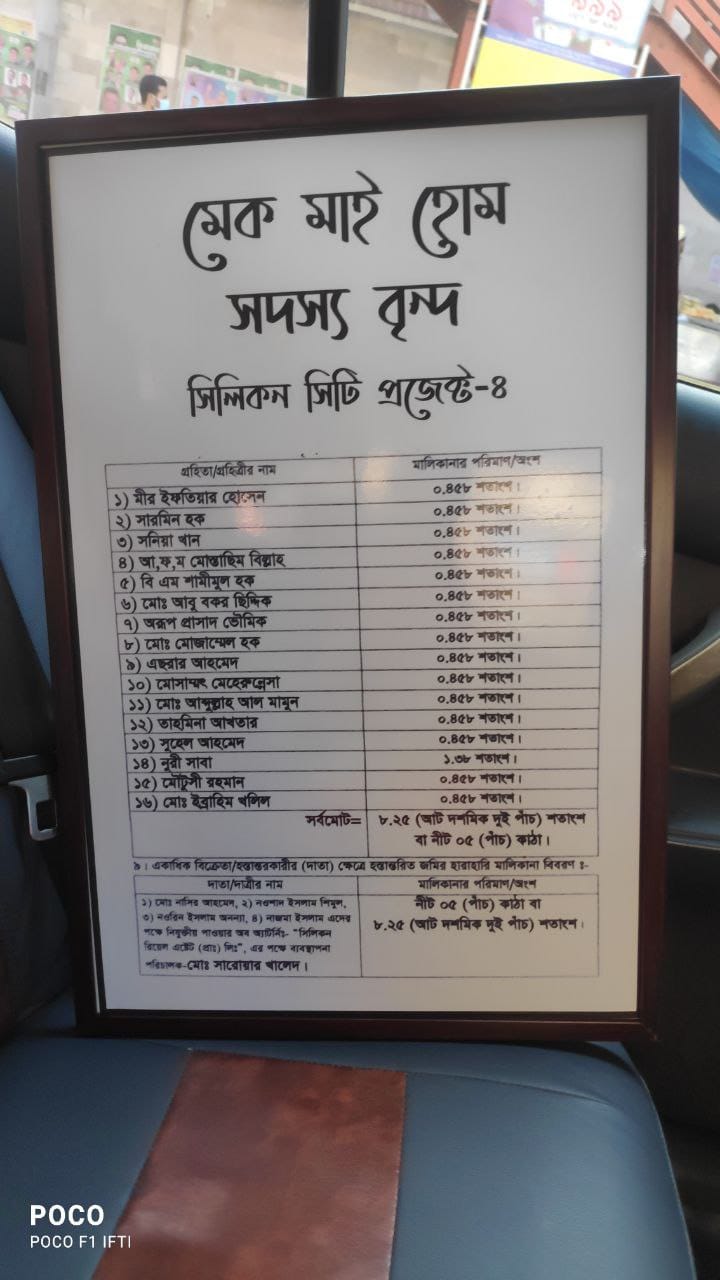 ৯৯৯
মেক মাই হোম
সদস্য বৃন্দ
সিলিকন সিটি প্রজেক্ট-৪
গ্রহিতা/গ্রহিত্রীর নাম মালিকানার পরিমাণ/অংশ
১) মীর ইফতিয়ার হোসেন ০.৪৫৮ শতাংশ।
২) সারমিন হক ০.৪৫৮ শতাংশ।
৩) সনিয়া খান ০.৪৫৮ শতাংশ।
৪) আ,ফ,ম মোস্তাছিম বিল্লাহ ০.৪৫৮ শতাংশ।
৫) বি এম শামীমুল হক ০.৪৫৮ শতাংশ।
৬) মোঃ আবু বকর ছিদ্দিক ০.৪৫৮ শতাংশ।
৭) অরূপ প্রাসাদ ভৌমিক ০.৪৫৮ শতাংশ।
৮) মোঃ মোজাম্মেল হক ০.৪৫৮ শতাংশ।
৯) এহরার আহমেদ ০.৪৫৮ শতাংশ।
১০) মোসাম্মৎ মেহেরুন্নেসা ০.৪৫৮ শতাংশ।
১১) মোঃ আব্দুল্লাহ আল মামুন ০.৪৫৮ শতাংশ।
১২) তাহমিনা আখতার ০.৪৫৮ শতাংশ।
১৩) সুহেল আহমেদ ০.৪৫৮ শতাংশ।
১৪) নুরী সাবা ১.৩৮ শতাংশ।
১৫) মৌটুসী রহমান ০.৪৫৮ শতাংশ।
১৬) মোঃ ইব্রাহিম খলিল ০.৪৫৮ শতাংশ।
সর্বমোট= ৮.২৫ (আট দশমিক দুই পাঁচ) শতাংশ
বা নীট ০৫ (পাঁচ) কাঠা।
৯। একাধিক বিক্রেতা/হস্তান্তরকারীর (দাতা) ক্ষেত্রে হস্তান্তরিত জমির হারাহারি মালিকানা বিবরণ ঃ-
দাতা/দাত্রীর নাম মালিকানার পরিমাণ/অংশ
১) মোঃ নাসির আহমেদ, ২) নওশাদ ইসলাম শিমুল, নীট ০৫ (পাঁচ) কাঠা বা
৩) নওরিন ইসলাম অনন্যা, ৪) নাজমা ইসলাম এদের ৮.২৫ (আট দশমিক দুই পাঁচ) শতাংশ।
পক্ষে নিযুক্তীয় পাওয়ার অব অ্যাটর্নিঃ- “সিলিকন
রিয়েল এস্টেট (প্রাঃ) লিঃ”, এর পক্ষে ব্যবস্থাপনা
পরিচালক-মোঃ সারোয়ার খালেদ।
POCO
POCO F1 IFTI